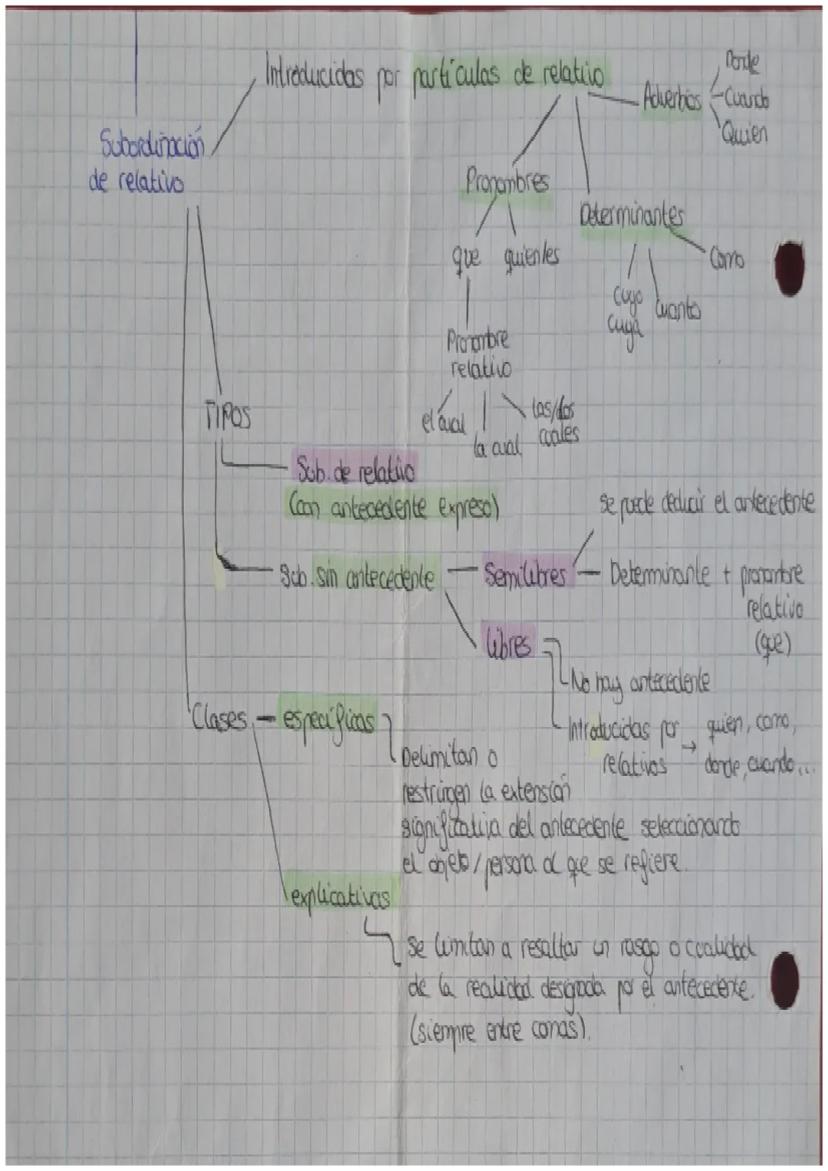 Introducidas por partículas de relativo
Donde
Adverbios
Cuando
Quien
Subordinación
de relativo
Pronombres
Determinantes
que
quien/es
Como
Cuyo
Cuya
Cuanto
Pronombre
relativo
el cual
la cual
las/los
cuales
TIPOS
Sub. de relativo
(con antecedente expreso)
se puede deducir el antecedente
Sub. sin antecedente
Semilibres
Determinante + pronombre
relativo
(que)
Libres
No hay antecedente
Introducidas por
relativos
→
quien, como,
donde, cuando...
Clases
específicas
Delimitan o
restringen la extensión
significativa del antecedente seleccionando
el objeto/persona al que se refiere.
explicativas
Se limitan a resaltar un rasgo o cualidad
de la realidad designada por el antecedente.
(siempre entre comas).